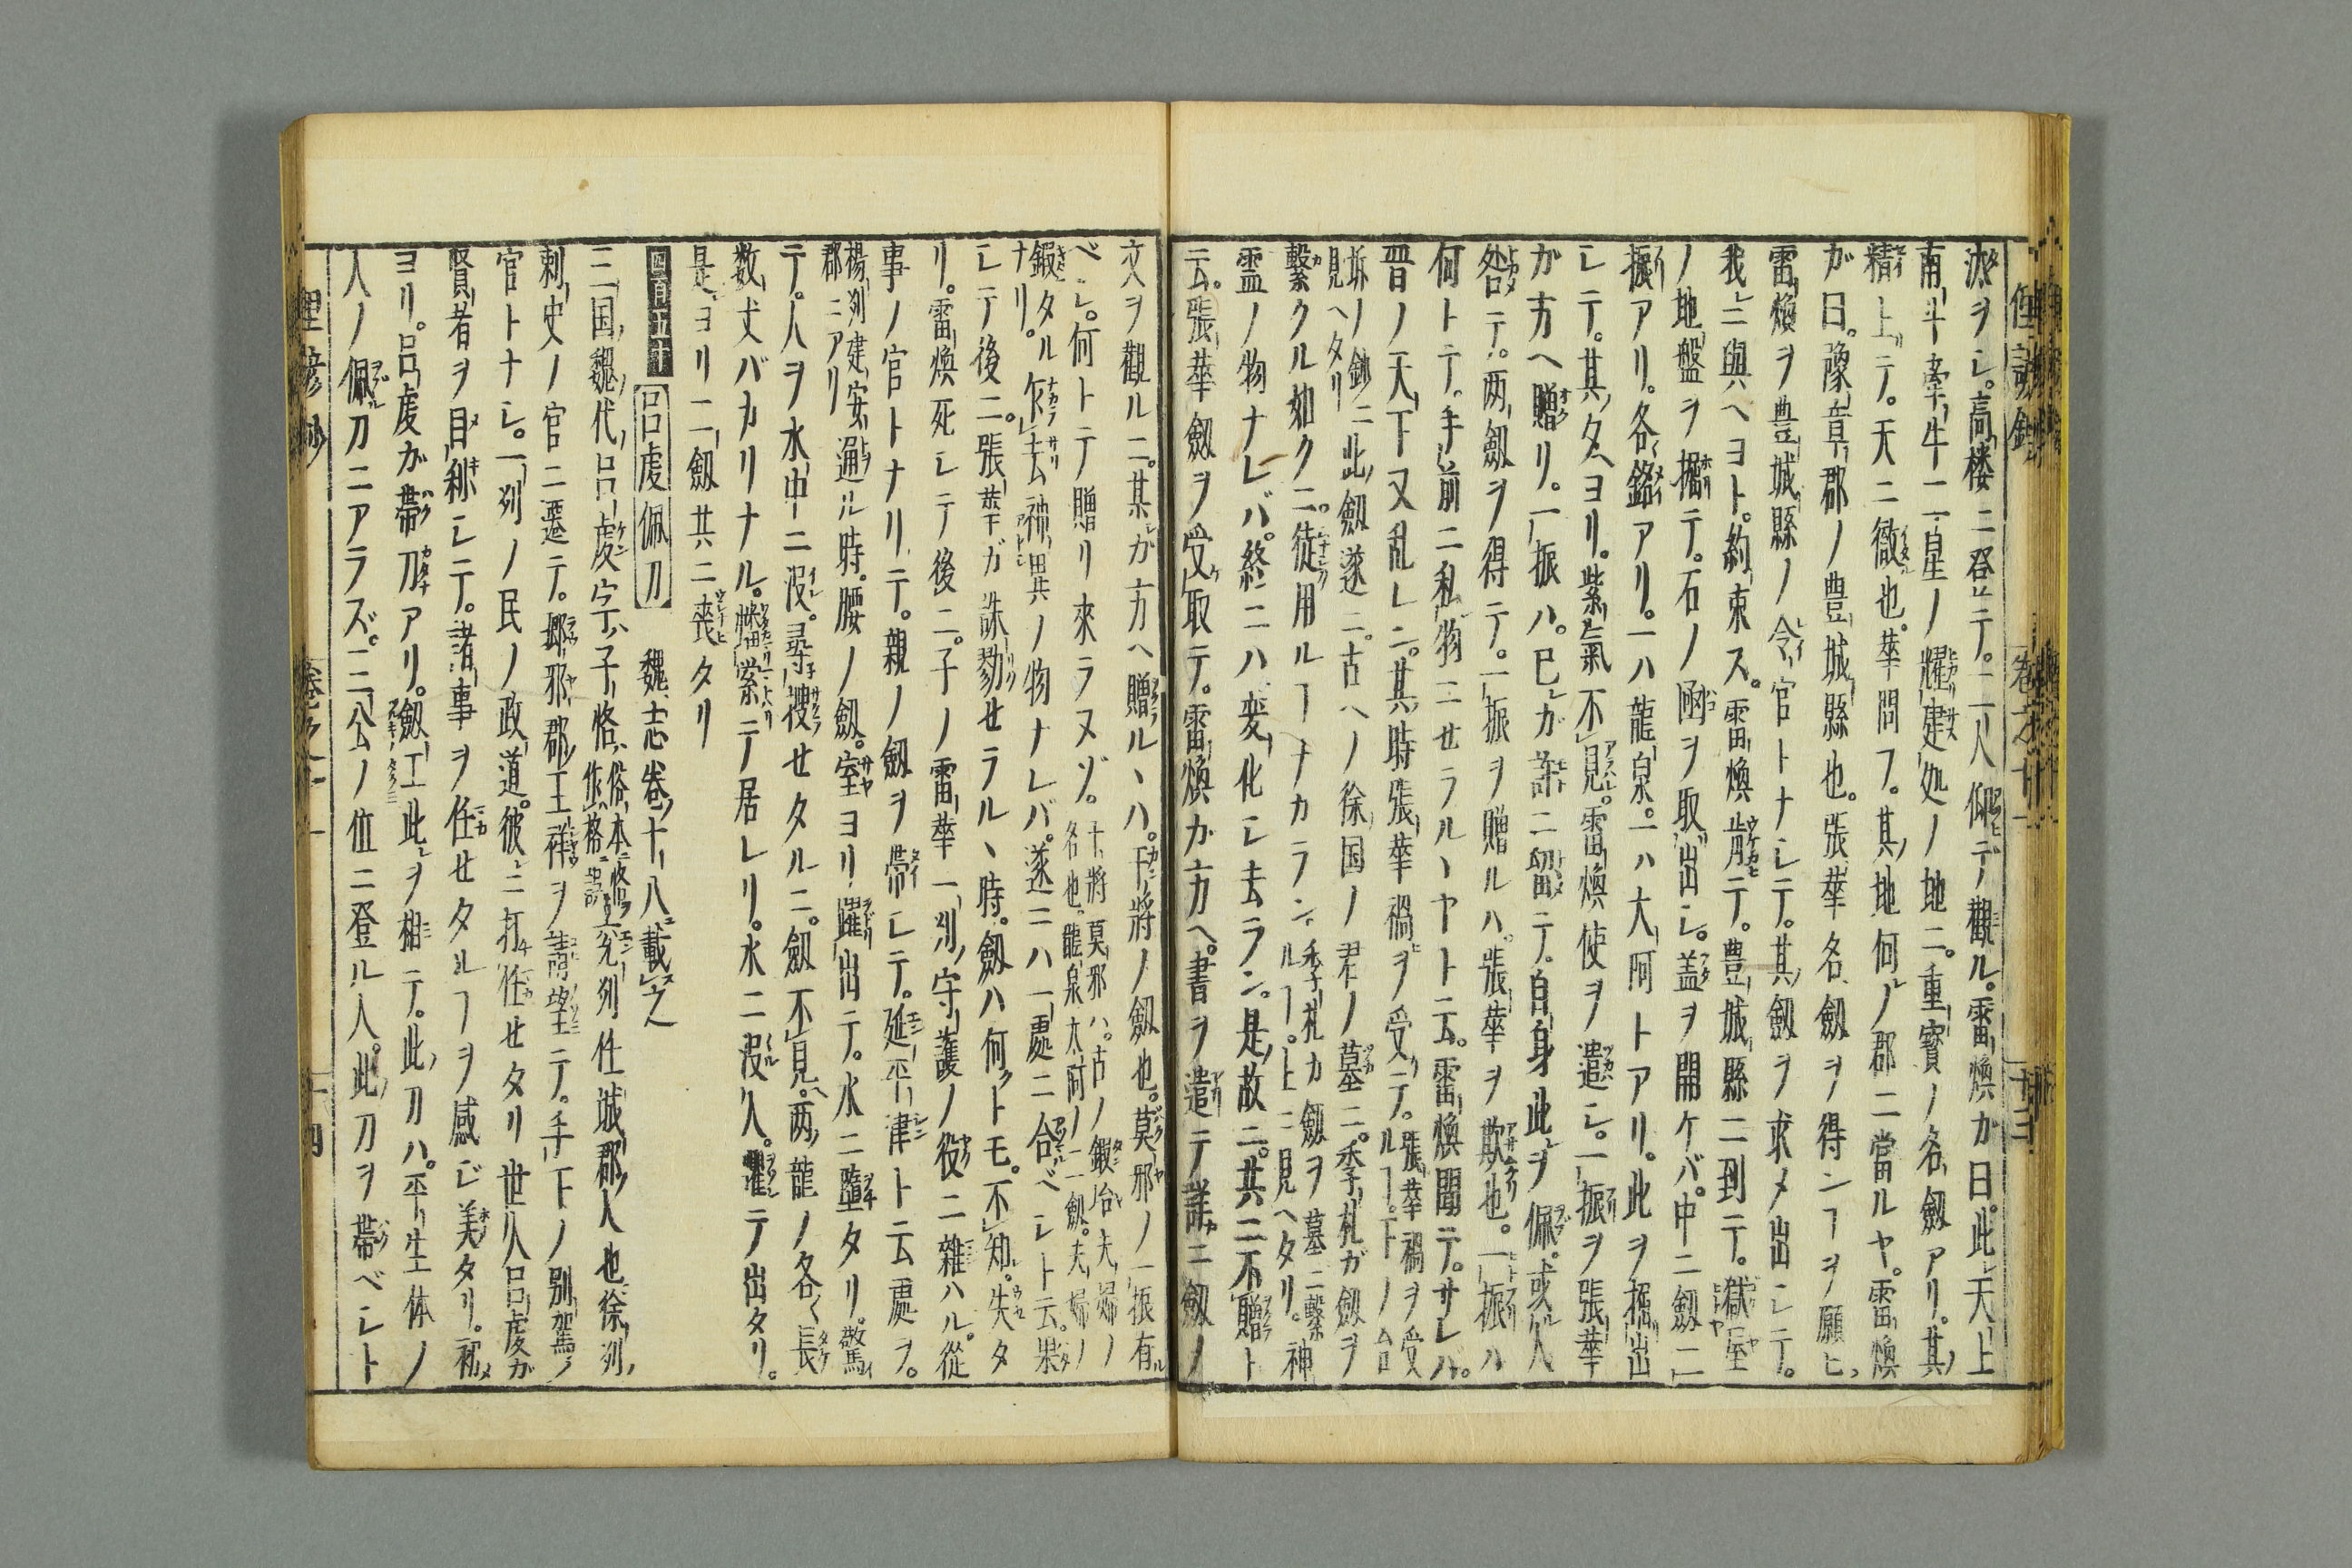 汰ヲシ。高楼ニ登テ。二人仰デ觀ル。雷煥カ曰。此天上
南斗牽牛二星ノ耀建処ノ地ニ。重寳ノ名劔アリ。其
精上テ。天ニ徹也。華問フ。其地何ノ郡ニ當ルヤ。雷煥
が曰。豫章郡ノ豊城縣也。張華名劔ヲ得ンヿヲ願ヒ。
雷煥ヲ豊城縣ノ令官トナシテ。其劔ヲ求メ出シテ。
我ニ與ヘヨト。約束ス。雷煥肯テ。豊城縣ニ到テ。獄屋
ノ地盤ヲ掘テ。石ノ凾ヲ取出シ。盖ヲ開ケバ。中ニ劔二
振アリ。各銘アリ。一ハ龍泉。一ハ大阿トアリ。此ヲ掘出
シテ。其夕ヨリ。紫氣不見。雷煥使ヲ遣シ。一振ヲ張華
が方ヘ贈リ。一振ハ。已が許ニ留テ。自身此ヲ佩。或人
咎テ。两劔ヲ得テ。一振ヲ贈ルハ。張華ヲ欺也。一振ハ
何トテ。手前ニ私物ニせラルヽヤト云。雷煥聞テ。サレバ。
晋ノ天下又乱レニ。其時張華禍ヲ受テ。張華禍ヲ受ルヿ。下ノ台
坼ノ鈔ニ見ヘタリ此劔遂ニ。古ヘノ徐国ノ君ノ墓ニ。季札ガ劔ヲ
繋クル如クニ。徒用ルヿナカラン。季札カ劔ヲ墓ニ繋ルヿ。上ニ見ヘタリ。神
霊ノ物ナレバ。終ニハ変化シ去ラン。是故ニ。共ニ不贈ト
云。張華劔ヲ受取テ。雷煥カ方ヘ。書ヲ遣テ詳ニ劔ノ
俚諺鈔 卷之十一 十三
文ヲ觀ルニ。某が方ヘ贈ルヽハ。干將ノ劔也。莫邪ノ一振有
ベシ。何トテ贈リ來ラヌゾ。干將莫邪ハ。古ノ鍛冶夫婦ノ名也。龍泉太阿ノ二劔。夫婦ノ
鍜タルナリ。乍去神異ノ物ナレバ。遂ニハ一處ニ合ベシト云。果
シテ後ニ。張華ガ誅勠せラルヽ時。劔ハ何トモ。不知。失タ
リ。雷煥死シテ後ニ。子ノ雷華一州守護ノ役ニ雜ハル。從
事ノ官トナリテ。親ノ劔ヲ帯シテ。延平津ト云處ヲ。
楊州建安郡ニアリ通ル時。腰ノ劔。室ヨリ躍出テ。水ニ墮タリ。驚
テ。人ヲ水中ニ没。尋捜せタルニ。劔不見。两龍ノ各〱長
数丈バカリナル。蟠縈テ居レリ。水ニ没人。懼テ出タリ。
是ヨリ二劔共ニ喪タリ
四百五十 呂虔佩刀 魏志卷十八載之
三国魏代呂虔字ハ子恪。俗本作格 任城郡人也徐州
刺史ノ官ニ遷テ。郷邪郡王祥ヲ請望テ。手下ノ別駕ノ
官トナシ。一州ノ民ノ政道。彼ニ打任せタリ世人呂虔が
賢者ヲ目利シテ。諸事ヲ任せタルヿヲ感ジ美タリ。初メ
ヨリ。呂虔が帯刀アリ。劔工此ヲ相テ。此刀ハ。平生体ノ
人ノ佩刀ニアラズ。三公ノ位ニ登ル人。此刀ヲ帯ベシト
俚諺鈔 卷之十一 十四